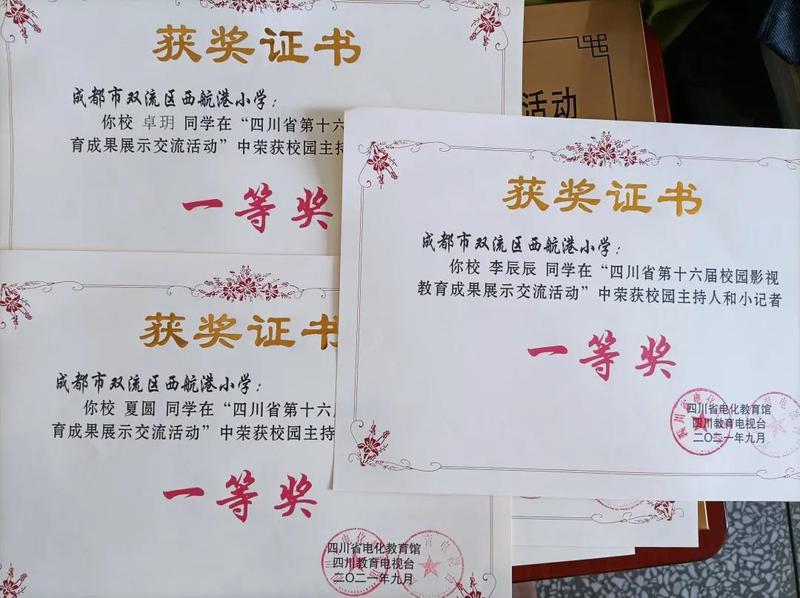 获奖证书
成都市双流区西航港小学：
你校 卓玥 同学在“四川省第十六
育成果展示交流活动”中荣获校园主持
一等奖
活动
获奖证书
成都市双流区西航港小学：
你校 李辰辰 同学在“四川省第十六届校园影视
教育成果展示交流活动”中荣获校园主持人和小记者
一等奖
四川省电化教育馆
四川教育电视台
二〇二一年九月
获奖证书
成都市双流区西航港小学：
你校 夏圆 同学在“四川省第十六
育成果展示交流活动”中荣获校园主持
一等奖
四川省电化教育馆
四川教育电视台
二〇二一年九月